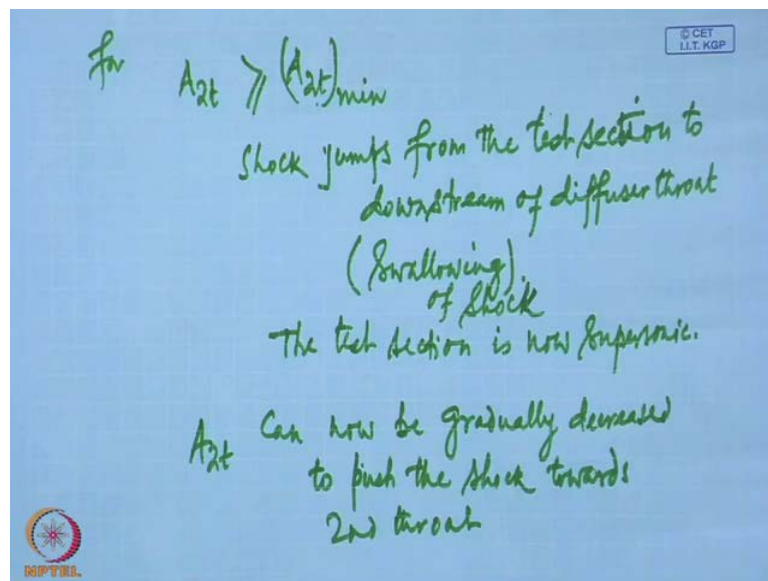 © CET
I.I.T. KGP
for A₂t ⩾ (A₂t)min
Shock jumps from the test section to
downstream of diffuser throat
(Swallowing)
of shock
The test section is now Supersonic.
A₂t Can now be gradually decreased
to push the shock towards
2nd throat
NPTEL